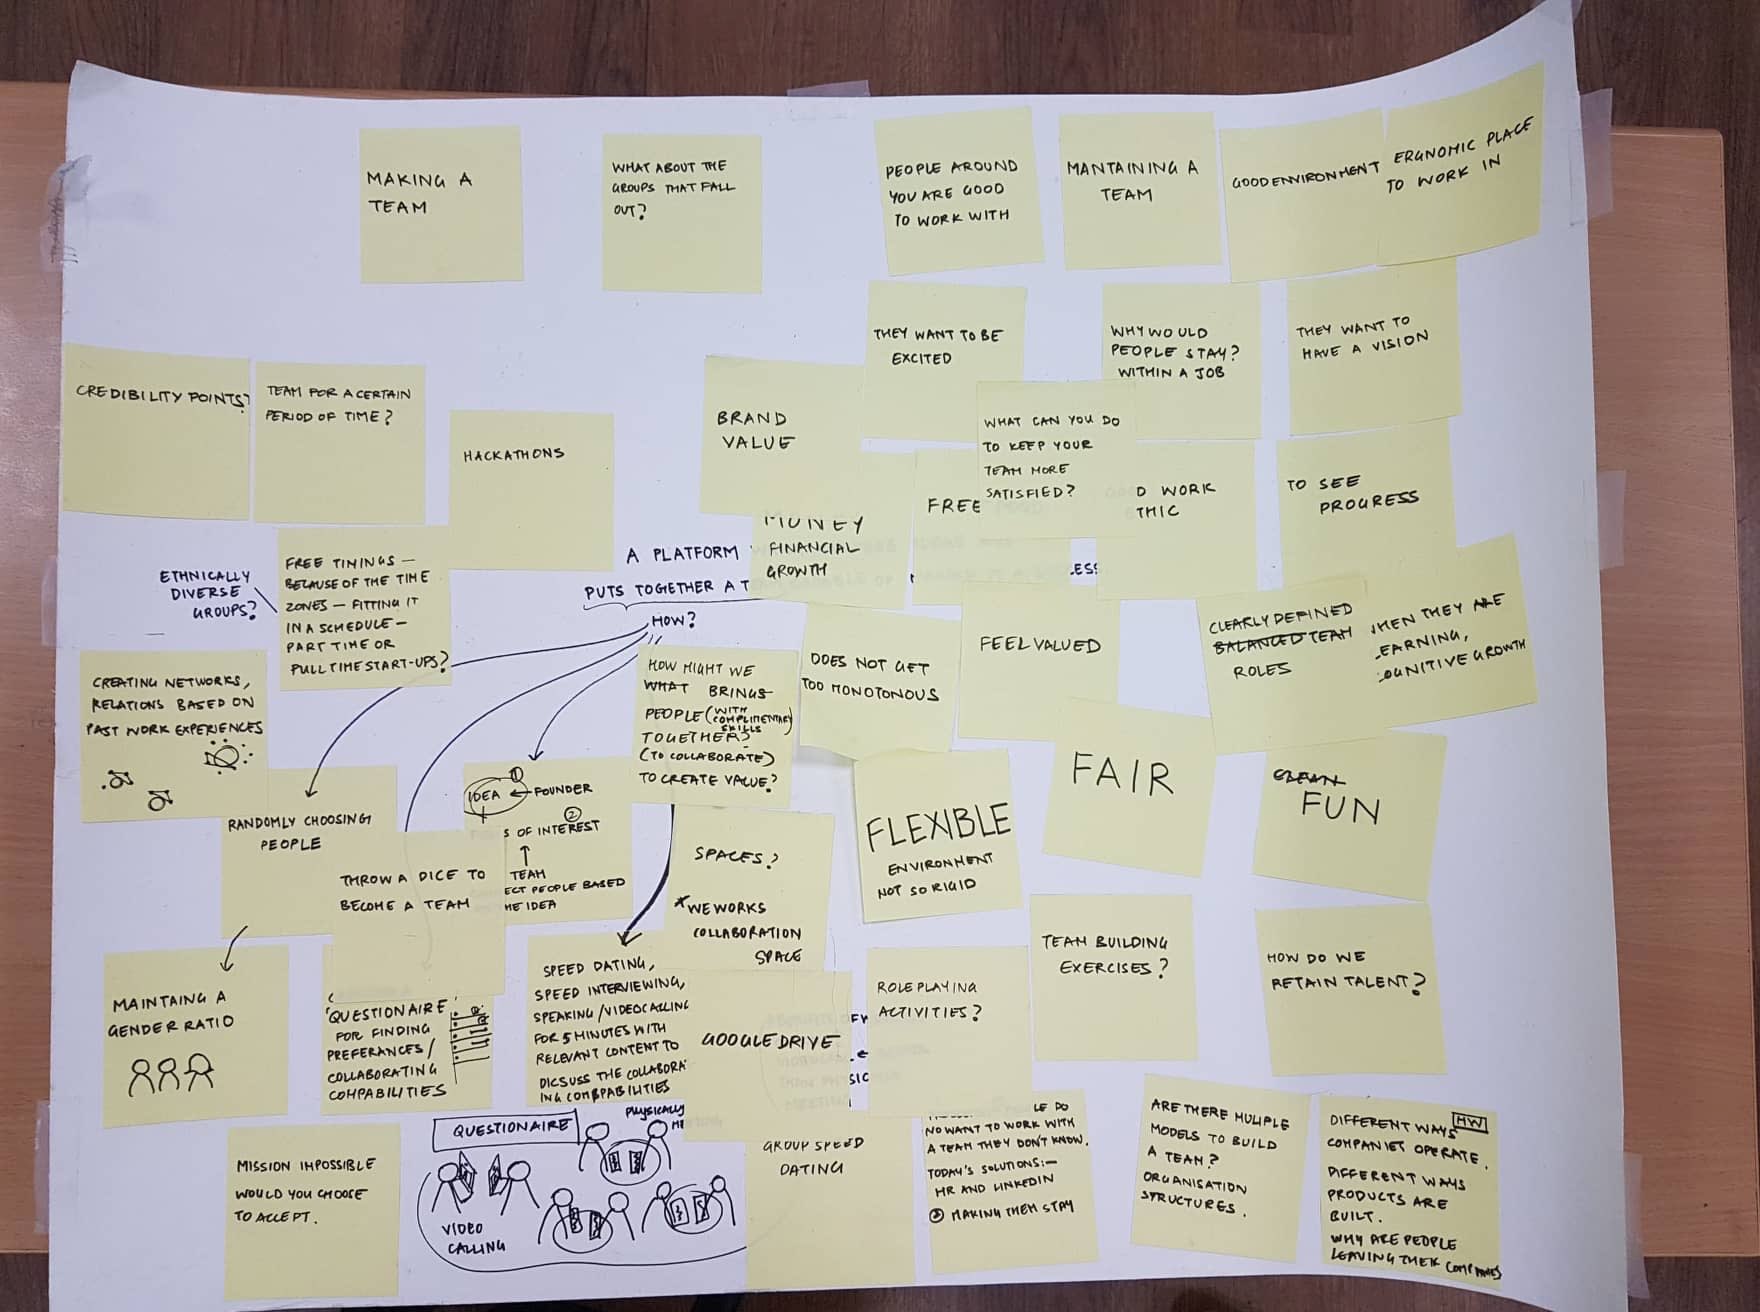 MAKING A
TEAM
WHAT ABOUT THE
GROUPS THAT FALL
OUT?
PEOPLE AROUND
YOU ARE GOOD
TO WORK WITH
MANTAINING A
TEAM
GOOD ENVIRONMENT
ERGNOMIC PLACE
TO WORK IN
THEY WANT TO BE
EXCITED
WHY WOULD
PEOPLE STAY?
WITHIN A JOB
THEY WANT TO
HAVE A VISION
CREDIBILITY POINTS?
TEAM FOR A CERTAIN
PERIOD OF TIME?
HACKATHONS
BRAND
VALUE
WHAT CAN YOU DO
TO KEEP YOUR
TEAM MORE
SATISFIED?
FREE
D WORK
THIC
TO SEE
PROGRESS
MONEY
FINANCIAL
GROWTH
A PLATFORM
PUTS TOGETHER A T
ESS
HOW?
ETHNICALLY
DIVERSE
GROUPS?
FREE TIMINGS —
BECAUSE OF THE TIME
ZONES — FITTING IT
IN A SCHEDULE —
PART TIME OR
FULL TIME START-UPS?
CREATING NETWORKS,
RELATIONS BASED ON
PAST WORK EXPERIENCES
HOW MIGHT WE
WHAT BRINGS
PEOPLE (WITH COMPLIMENTARY SKILLS)
TOGETHER?
(TO COLLABORATE)
TO CREATE VALUE?
DOES NOT GET
TOO MONOTONOUS
FEEL VALUED
CLEARLY DEFINED
BALANCED TEAM
ROLES
WHEN THEY ARE
LEARNING,
COGNITIVE GROWTH
RANDOMLY CHOOSING
PEOPLE
THROW A DICE TO
BECOME A TEAM
①
IDEA ← FOUNDER
②
S OF INTEREST
TEAM
ECT PEOPLE BASED
HE IDEA
SPACES?
*WEWORKS
COLLABORATION
SPACE
FLEXIBLE
ENVIRONMENT
NOT SO RIGID
FAIR
CLEAN
FUN
MAINTAING A
GENDER RATIO
QUESTIONAIRE
FOR FINDING
PREFERANCES/
COLLABORATING
COMPABILITIES
SPEED DATING,
SPEED INTERVIEWING,
SPEAKING/VIDEOCALLING
FOR 5 MINUTES WITH
RELEVANT CONTENT TO
DICSUSS THE COLLABORA
ING COMBPABILITIES
GOOGLE DRIVE
ROLE PLAYING
ACTIVITIES?
TEAM BUILDING
EXERCISES?
HOW DO WE
RETAIN TALENT?
SIC
MISSION IMPOSSIBLE
WOULD YOU CHOOSE
TO ACCEPT.
QUESTIONAIRE
PHYSICALLY
VIDEO
CALLING
GROUP SPEED
DATING
LE DO
NO WANT TO WORK WITH
A TEAM THEY DON'T KNOW.
TODAY'S SOLUTIONS:—
HR AND LINKEDIN
② MAKING THEM STAY
ARE THERE MULIPLE
MODELS TO BUILD
A TEAM?
ORGANISATION
STRUCTURES.
HW
DIFFERENT WAYS
COMPANIES OPERATE.
DIFFERENT WAYS
PRODUCTS ARE
BUILT.
WHY ARE PEOPLE
LEAVING THEIR COMPANIES